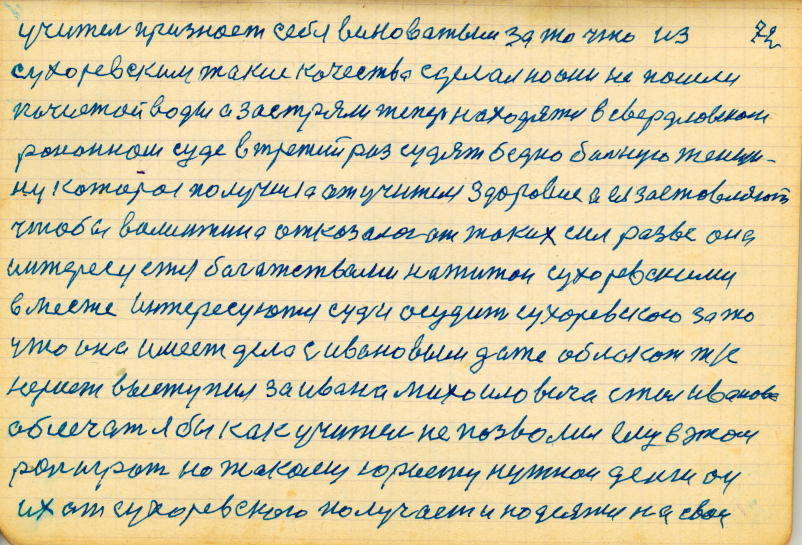 учител признает себя виноватым за то что из 72
сухоревским такие качества сделал но они не пошли
по чистой воды а застряли тепер находяти в свердловском
ропонном суде в третий раз судят бедно болную женщи-
ну которое получила от учител здоровие а ея заставляют
чтобы валинтина отказалас от таких сил разве она
интересуется багатствами нажитои сухоревскими
вместе интересуютя суди осудит сухоревского за то
что она имеет дела с ивановым даже облокот жк
юрист выступил за ивана михоиловича стал иванова
облечат я бы как учител не позволил ему в этом
роли играт но такому юристу нужнои денги он
их от сухоревского получает и нодеяти на свои